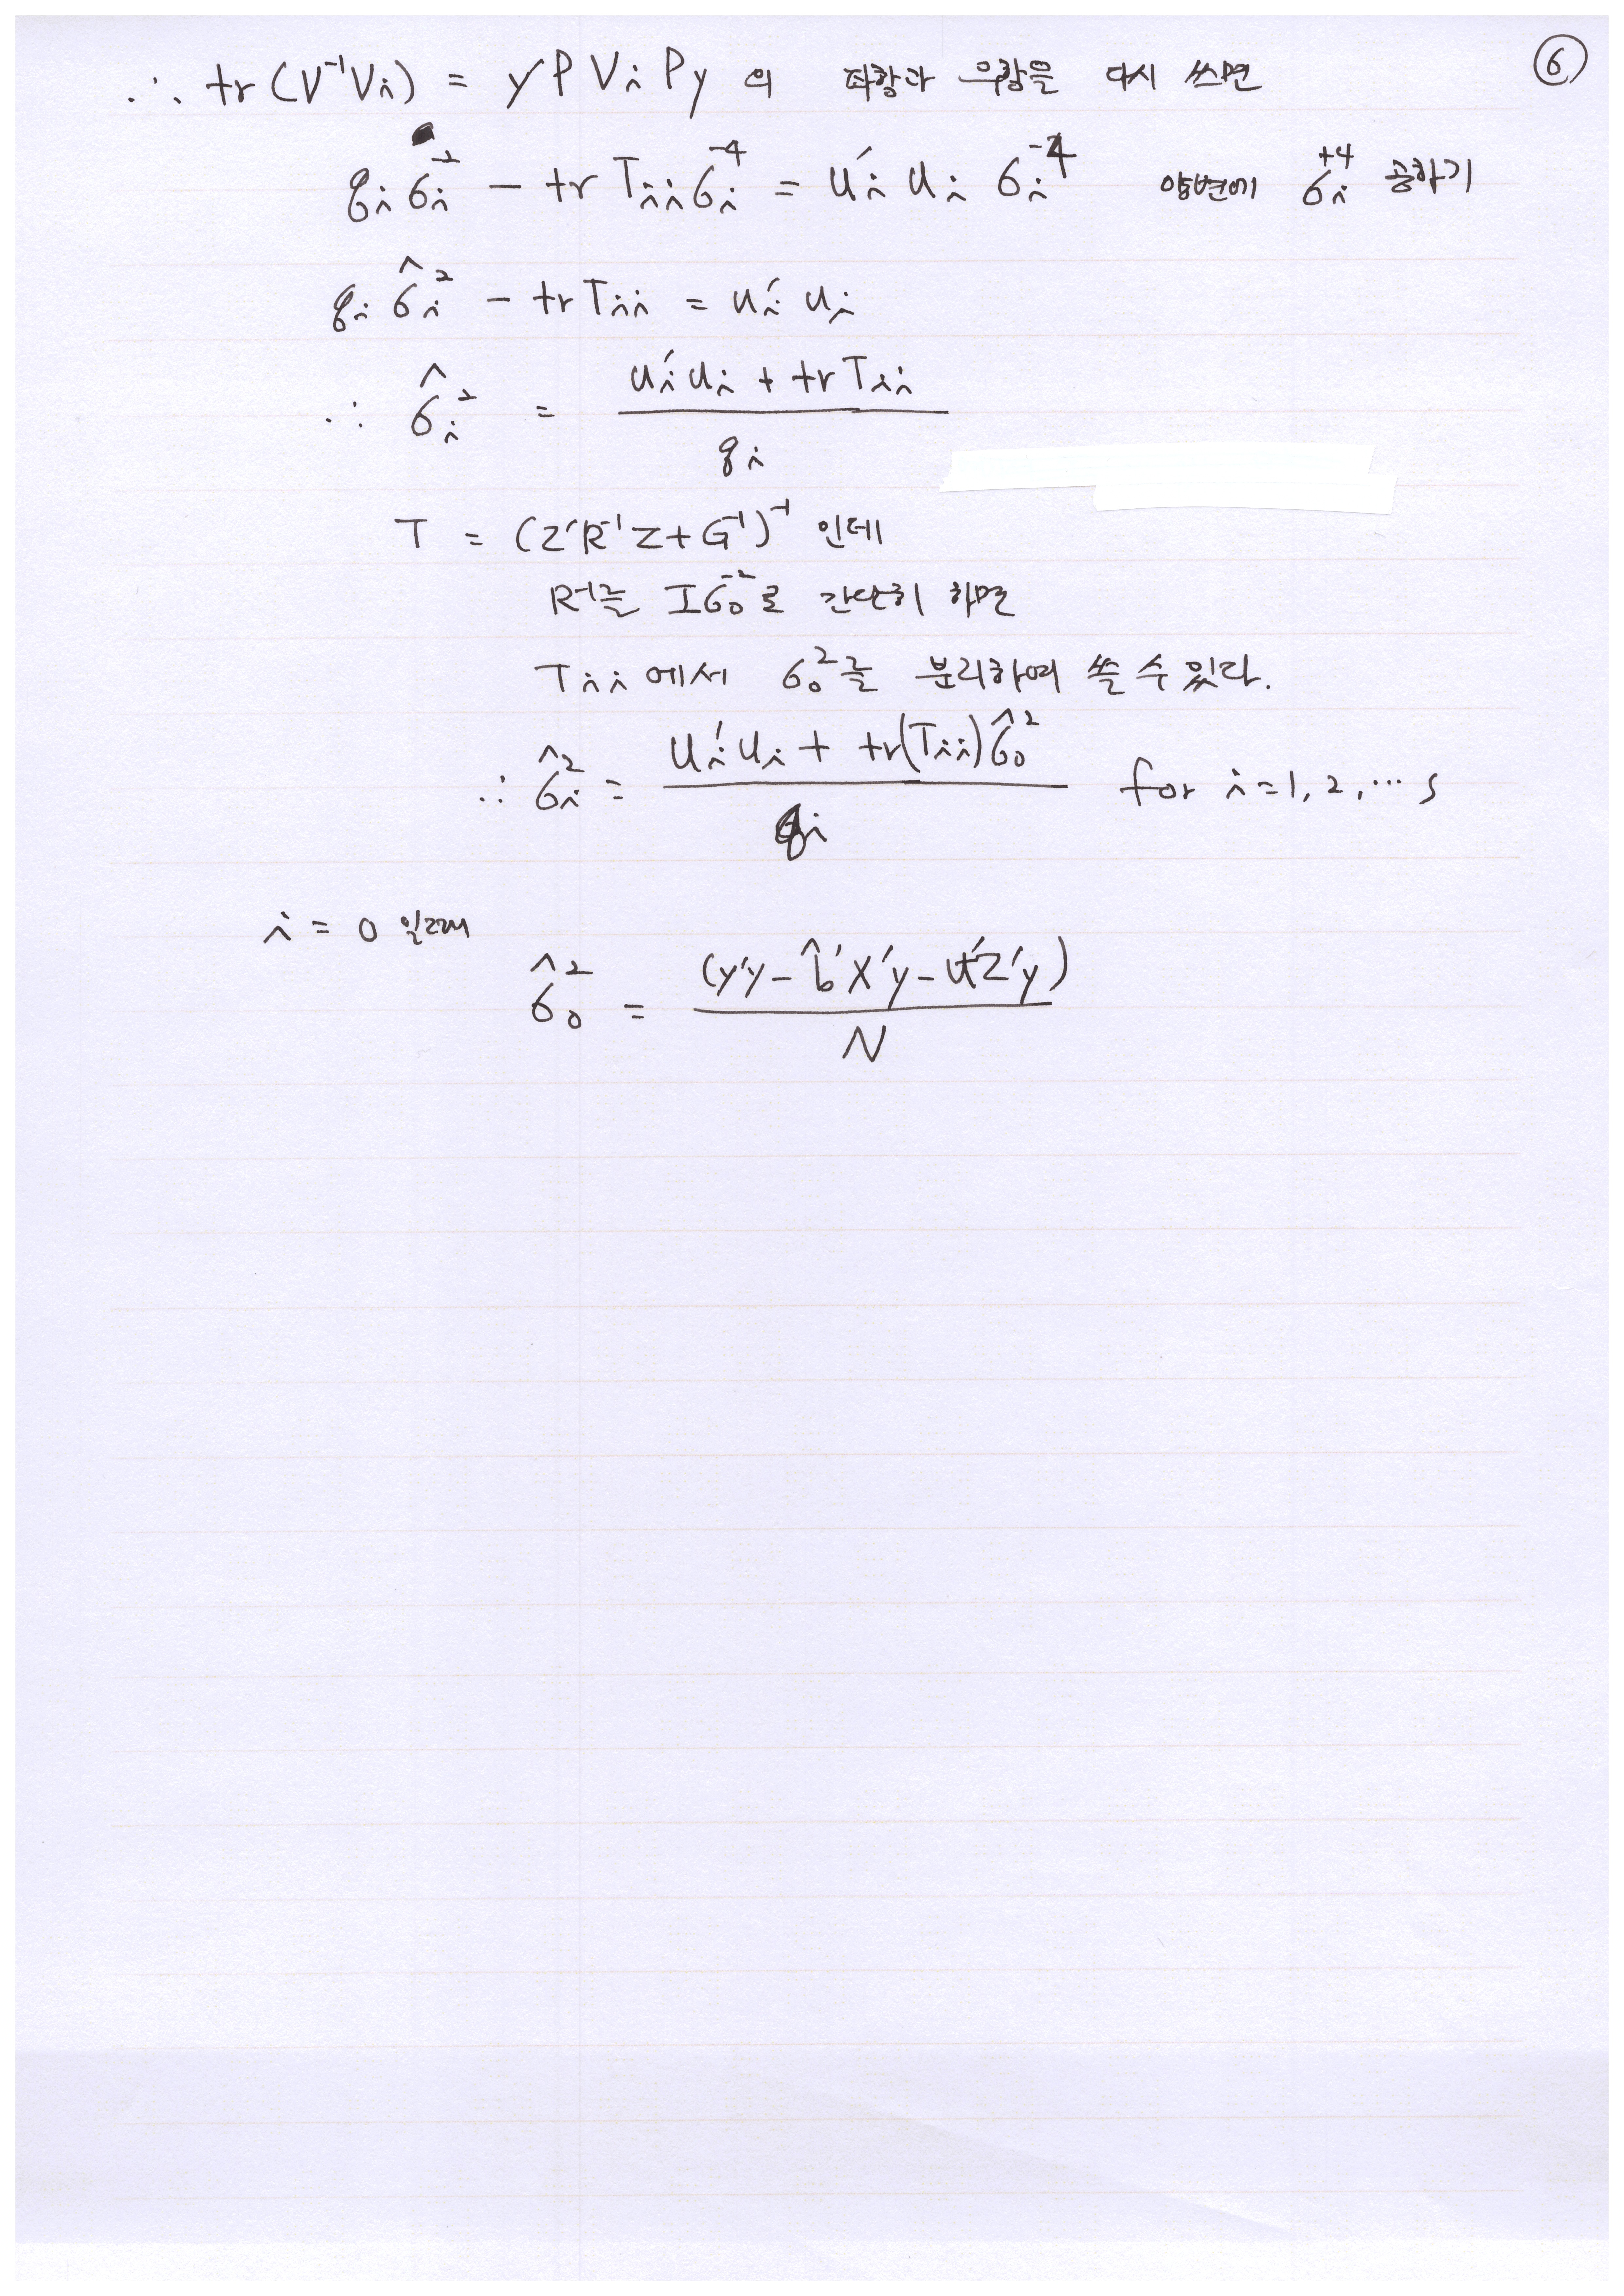 ∴ tr(V⁻¹Vi) = y'PViPy 의 좌항과 우항을 다시 쓰면 ⑥
qi σi⁻² - tr Tii σi⁻⁴ = ui'ui σi⁻⁴ 양변에 σi⁺⁴ 곱하기
qi σ̂i² - tr Tii = ui'ui
∴ σ̂i² = (ui'ui + tr Tii) / qi
T = (Z'R⁻¹Z + G⁻¹)⁻¹ 인데
R⁻¹를 Iσ0⁻²로 간단히 하면
Tii에서 σ0²를 분리하여 쓸 수 있다.
∴ σ̂i² = (ui'ui + tr(Tii)σ̂0²) / qi for i=1, 2, ⋯ s
i = 0 일때
σ̂0² = (y'y - b̂'X'y - û'Z'y) / N